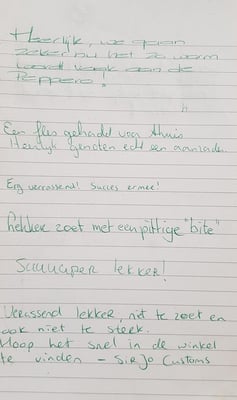 Heerlijk, we gaan
zeker nu het zo warm
wordt vaak aan de
Peppero!
Een fles gehaald voor thuis
Heerlijk genoten echt een aanrader.
Erg verrassend! Succes ermee!
Lekker zoet met een pittige "bite"
Suuuuper lekker!
Verassend lekker, nit te zoet en
ook niet te sterk.
Hoop het snel in de winkel
te vinden - Sir Jo Customs